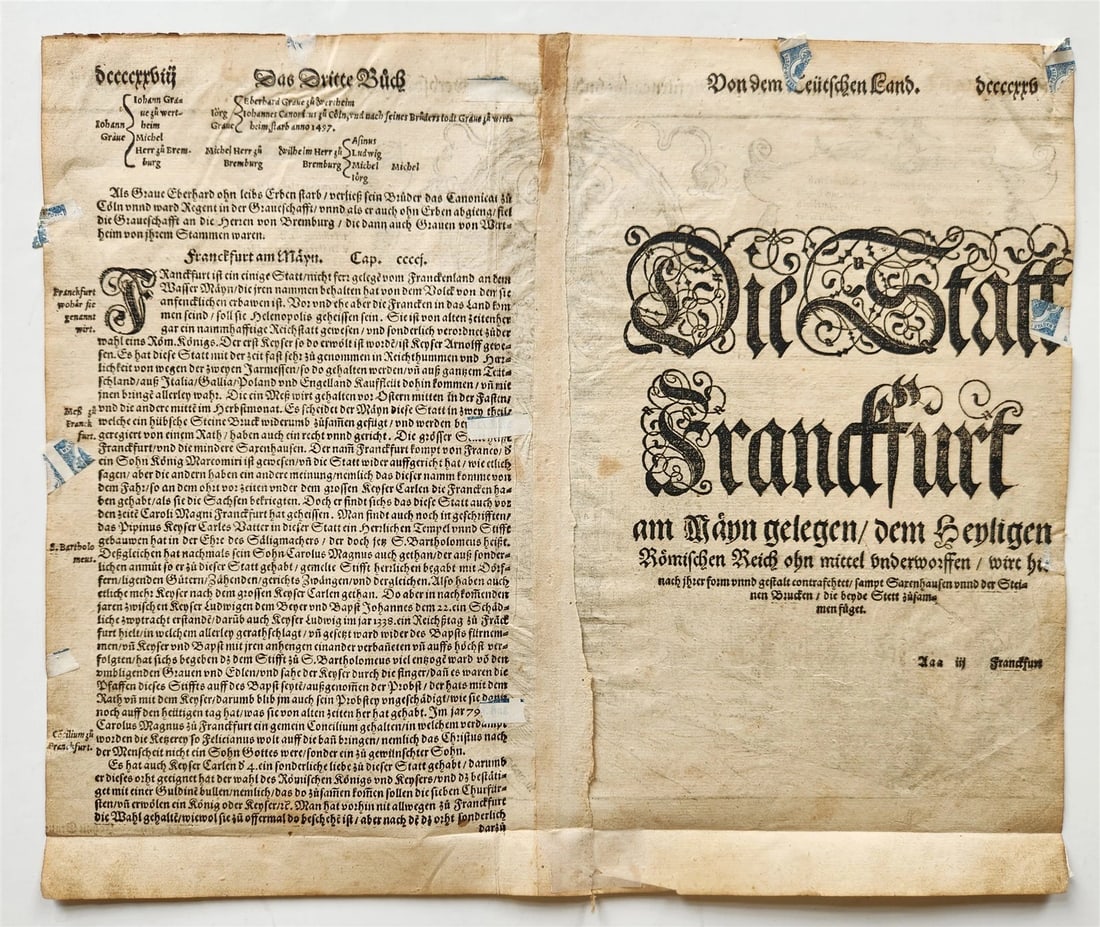 dccccxxviij
Das Dritte Bůch
Johann Graue
ue zů wert-
heim
Johann
Graue
Michel
Herr zů Brem-
burg
Jörg
Graue
Eberhard Graue zů Wertheim
Johannes Canonicus zů Cöln, vnd nach seines Brůders todt Graue zů wert-
heim, starb anno 1497.
Michel Herr zů
Bremburg
Wilhelm Herr zů
Bremburg
Asinus
Ludwig
Michel Michel
Jörg
Als Graue Eberhard ohn leibs Erben starb / verließ sein Brůder das Canonicat zů
Cöln vnnd ward Regent in der Graueschafft / vnnd als er auch ohn Erben abgieng / fiel
die Graueschafft an die Herren von Bremburg / die dann auch Grauen von Wirt-
heim von jhrem Stammen waren.
Franckfurt am Mäyn. Cap. ccccj.
Franckfurt
wohär sie
genannt
wirt.
FRanckfurt ist ein einige Statt / nicht ferr gelegẽ vom Franckenland an dem
Wasser Mäyn / die jren nammen behalten hat von dem Volck von den sie
anfencklichen erbawen ist. Vor vnd ehe aber die Francken in das Land kom
men seind / soll sie Helenopolis geheissen sein. Sie ist von alten zeiten her
gar ein nammhafftige Reichstatt gewesen / vnd sonderlich verordnet zů der
wahl eins Röm. Königs. Der erst Keyser so do erwölt ist wordẽ / ist Keyser Arnolff gewe-
sen. Es hat diese Statt mit der zeit fast sehr zů genommen in Reichthummen vnd Herr-
lichkeit von wegen der zweyen Jarmessen / so do gehalten werden / vñ auß gantzem Teut-
schland / auß Italia / Gallia / Poland vnd Engelland Kauffleüt dohin kommen / vñ mit
jnen bringẽ allerley wahr. Die ein Meß wirt gehalten vor Ostern mitten in der Fasten /
Meß zů
Franck
furt.
vnd die andere mittẽ im Herbstmonat. Es scheidet der Mäyn diese Statt in zwey theil /
welche ein hübsche Steine Bruck widerumb zůsamen gefügt / vnd werden
geregiert von einem Rath / haben auch ein recht vnnd gericht. Die grösser
Franckfurt / vnd die mindere Saxenhausen. Der nam̃ Franckfurt kompt von Franco / d
ein Sohn König Marcomiri ist gewesen / vñ die Statt wider auffgericht hat / wie etlich
sagen / aber die andern haben ein andere meinung / nemlich das dieser namm komme von
dem Fahr / so an dem ohrt vor zeiten vnder dem grossen Keyser Carlen die Francken ha-
ben gehabt / als sie die Sachsen bekriegten. Doch er findt sichs das diese Statt auch vor
den zeitẽ Caroli Magni Franckfurt hat geheissen. Man findt auch noch in geschrifften /
das Pipinus Keyser Carles Vatter in dieser Statt ein Herlichen Tempel vnnd Stifft
S. Bartholo
meus.
gebauwen hat in der Ehre des Säligmachers / der doch jetz S. Bartholomeus heißt.
Deßgleichen hat nachmals sein Sohn Carolus Magnus auch gethan / der auß sonder-
lichen anmůt so er zů dieser Statt gehabt / gemelte Stifft herrlichen begabt mit Dörf-
fern / ligenden Gütern / Zähenden / gerichts Zwängen / vnd dergleichen. Also haben auch
etliche mehr Keyser nach dem grossen Keyser Carlen gethan. Do aber in nachkommenden
jaren zwischen Keyser Ludwigen dem Beyer vnd Bapst Johannes dem 22. ein Schäd-
liche zwytracht erstandẽ / darůb auch Keyser Ludwig im jar 1338. ein Reichßtag zů Frãck
furt hielt / in welchem allerley gerathschlagt / vñ gesetzt ward wider des Bapsts fürnem-
men / vñ Keyser vnd Bapst mit jren anhengen einander verbañeten vñ auffs höchst ver-
folgten / hat sichs begeben dz dem Stifft zů S. Bartholomeus viel entzogẽ ward võ den
vmbligenden Grauen vnd Edlen / vnd sahe der Keyser durch die finger / dañ es waren die
Pfaffen dieses Stiffts auff des Bapst seytẽ / außgenom̃en der Probst / der hats mit dem
Rath vñ mit dem Keyser / darumb blib jm auch sein Probstey vngeschädigt / wie sie dann
noch auff den heütigen tag hat / was sie von alten zeiten her hat gehabt. Im jar 79
Concilium zů
Franckfurt.
Carolus Magnus zů Franckfurt ein gemein Concilium gehalten / in welchem verdampt
worden die Ketzerey so Felicianus wolt auff die bañ bringen / nemlich das Christus nach
der Menscheit nicht ein Sohn Gottes were / sonder ein zů gewünschter Sohn.
Es hat auch Keyser Carlen d' 4. ein sonderliche liebe zů dieser Statt gehabt / darumb
er dieses orht geeignet hat der wahl des Römischen Königs vnd Keysers / vnd dz bestäti-
get mit einer Guldinẽ bullen / nemlich / das do zůsamẽ kom̃en sollen die sieben Churfür-
sten / vñ erwölen ein König oder Keyser / ꝛc. Man hat vorhin nit allwegen zů Franckfurt
die Wahl gehaltẽ / wiewol sie zů offermal do beschehẽ ist / aber nach dẽ dz orht sonderlich
darzů
Von dem Teütschen Land.
dccccxxv
Die Statt
Franckfurt
am Mäyn gelegen / dem Heyligen
Römischen Reich ohn mittel vnderworffen / wirt hie
nach jhrer form vnnd gestalt contrafehtet / sampt Saxenhausen vnnd der Stei-
nen Brucken / die beyde Stett zůsam-
men füget.
Aaa iij Franckfurt